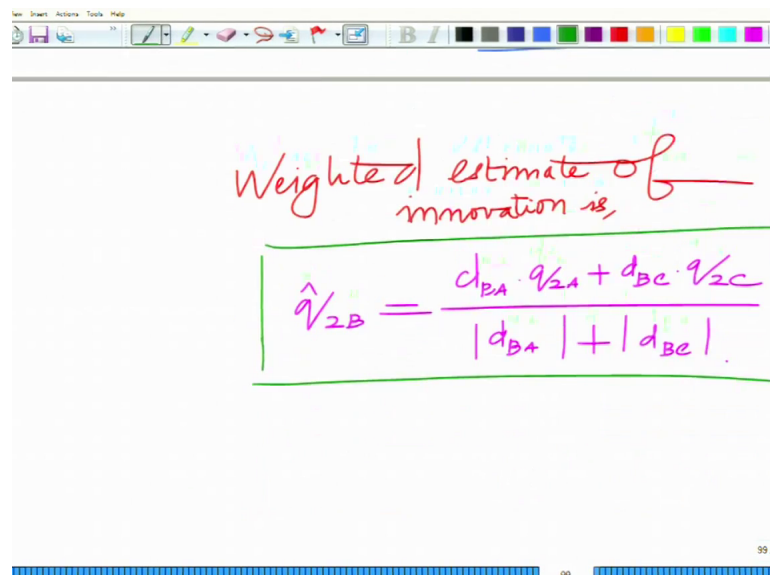 Insert Actions Tools Help
B I
Weighted estimate of
innovation is,
q̂_{2B} = \frac{d_{BA} · q_{2A} + d_{BC} · q_{2C}}{|d_{BA}| + |d_{BC}|}.
99